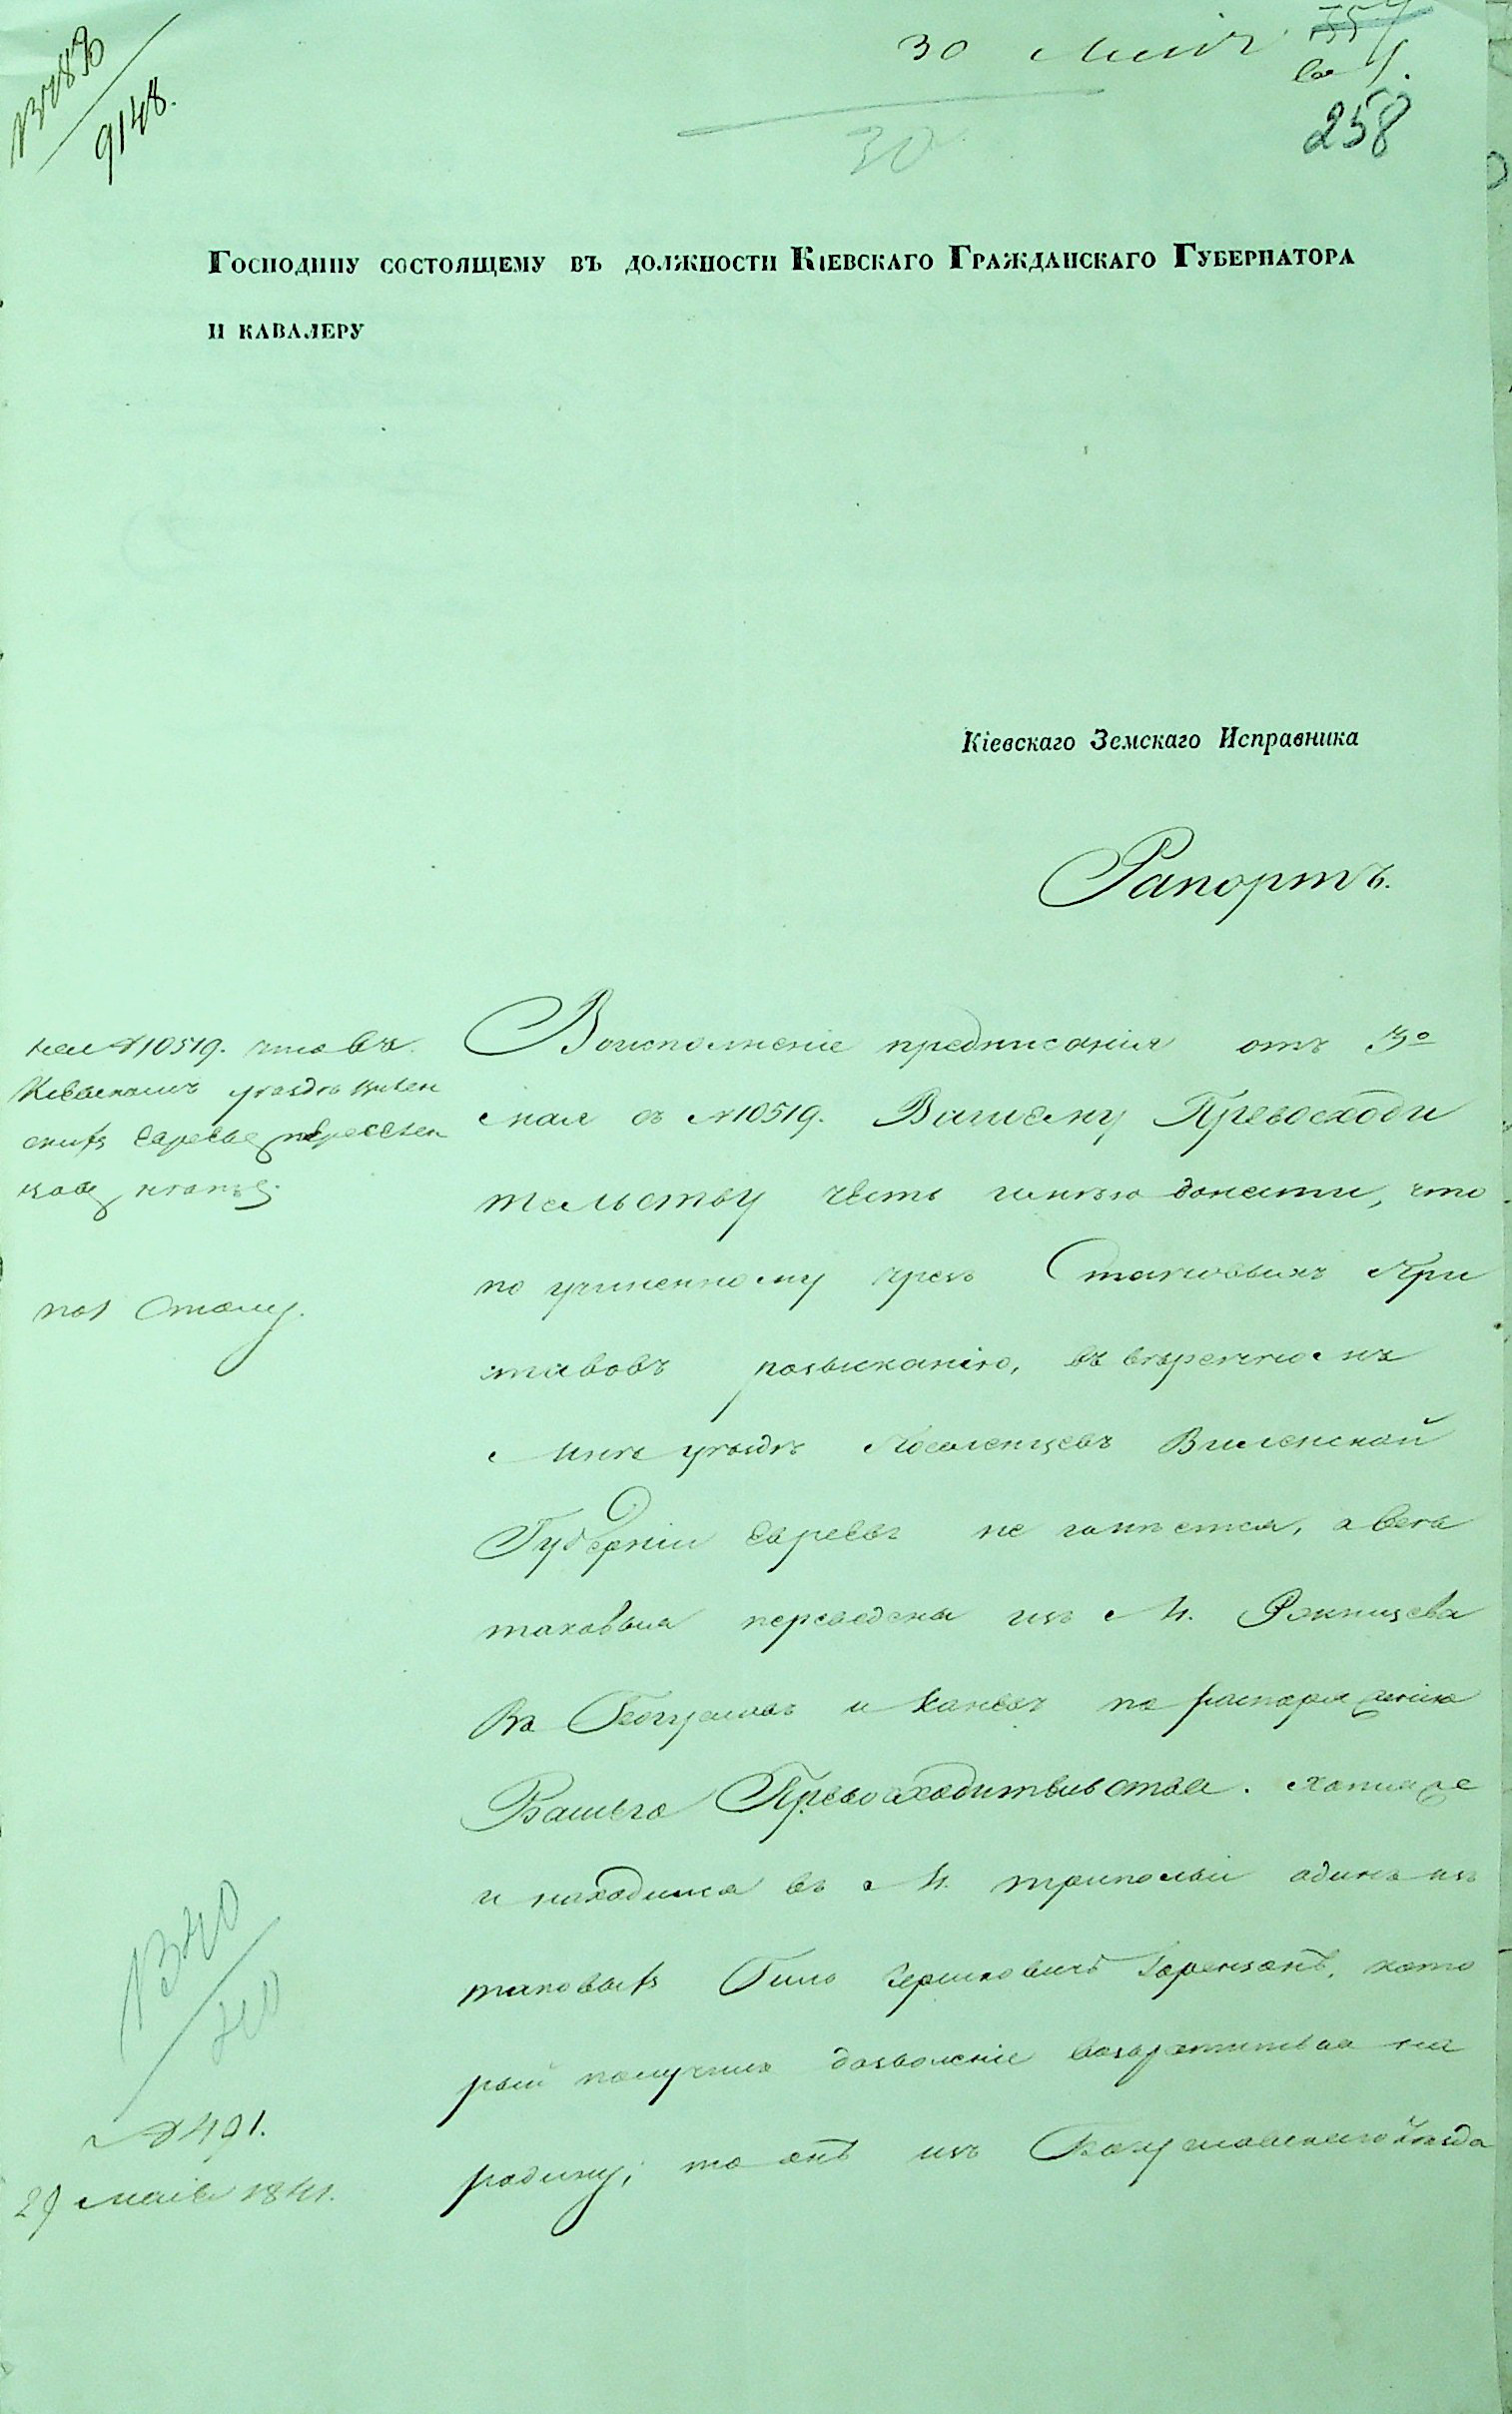 30 Маія
258
30
9148.
Господину состоящему въ должности Кіевскаго Гражданскаго Губернатора
и кавалеру
Кіевскаго Земскаго Исправника
Рапортъ.
на №10519. что въ
Кіевскомъ уѣздѣ Вилен
скихъ евреевъ переселен
цовъ нѣтъ.
Воисполненіе предписанія отъ 3º
мая съ №10519. Вашему Превосходи
тельству честь имѣю донести, что
по учиненному чрезъ Становыхъ При
ставовъ розысканію, въ ввѣренномъ
мнѣ уѣздѣ Поселенцевъ Виленской
Губерніи Евреевъ не имѣется, а всѣ
таковыя переведены изъ М. Ржищева
въ Богуславъ и Каневъ по распоряженію
Вашего Превосходительства. хотя же
и находился въ М. Триполѣи одинъ изъ
таковыхъ Гершковичъ кото
рый получилъ дозволеніе возвратиться на
родину, то онъ изъ Богуславскаго Уѣзда
№491.
29 маія 1841.